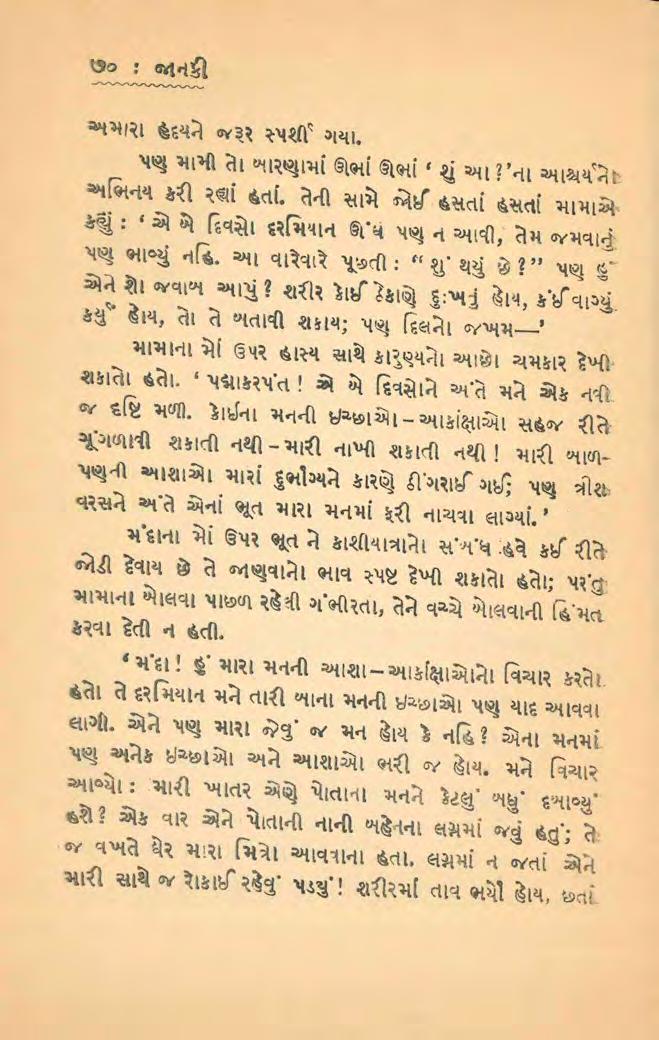 ૭૦ : જાનકી
અમારા હૃદયને જરૂર સ્પર્શી ગયા.
પણ મામી તો બારણામાં ઊભાં ઊભાં ‘ શું આ ?’ના આશ્ચર્યનો
અભિનય કરી રહ્યાં હતાં. તેની સામે જોઈ હસતાં હસતાં મામાએ
કહ્યું : ‘ એ બે દિવસો દરમિયાન ઊંઘ પણ ન આવી, તેમ જમવાનું
પણ ભાવ્યું નહિ. આ વારેવારે પૂછતી : “ શું થયું છે ? ” પણ હું
એને શો જવાબ આપું ? શરીર કોઈ ઠેકાણે દુઃખતું હોય, કંઈ વાગ્યું
કર્યું હોય, તો તે બતાવી શકાય; પણ દિલનો જખમ—’
મામાના મોં ઉપર હાસ્ય સાથે કારુણ્યનો આછો ચમકાર દેખી
શકાતો હતો. ‘ પદ્માકરપંત ! એ બે દિવસોને અંતે મને એક નવી
જ દૃષ્ટિ મળી. કોઇના મનની ઇચ્છાઓ – આકાંક્ષાઓ સહજ રીતે
ગૂંગળાવી શકાતી નથી – મારી નાખી શકાતી નથી ! મારી બાળ-
પણની આશાઓ મારાં દુર્ભાગ્યને કારણે ઠીંગરાઈ ગઈ; પણ ત્રીશ
વરસને અંતે એનાં ભૂત મારા મનમાં ફરી નાચવા લાગ્યાં.’
મંદાના મોં ઉપર ભૂત ને કાશીયાત્રાનો સંબંધ હવે કઈ રીતે
જોડી દેવાય છે તે જાણવાનો ભાવ સ્પષ્ટ દેખી શકાતો હતો; પરંતુ
મામાના બોલવા પાછળ રહેલી ગંભીરતા, તેને વચ્ચે બોલવાની હિંમત
કરવા દેતી ન હતી.
‘ મંદા ! હું મારા મનની આશા – આકાંક્ષાઓનો વિચાર કરતો
હતો તે દરમિયાન મને તારી બાના મનની ઇચ્છાઓ પણ યાદ આવવા
લાગી. એને પણ મારા જેવું જ મન હોય કે નહિ ? એના મનમાં
પણ અનેક ઇચ્છાઓ અને આશાઓ ભરી જ હોય. મને વિચાર
આવ્યો : મારી ખાતર એણે પોતાના મનને કેટલું બધું દબાવ્યું
હશે ? એક વાર એને પોતાની નાની બહેનના લગ્નમાં જવું હતું; તે
જ વખતે ઘેર મારા મિત્રો આવવાના હતા. લગ્નમાં ન જતાં એને
મારી સાથે જ રોકાઈ રહેવું પડ્યું ! શરીરમાં તાવ ભર્યો હોય, છતાં